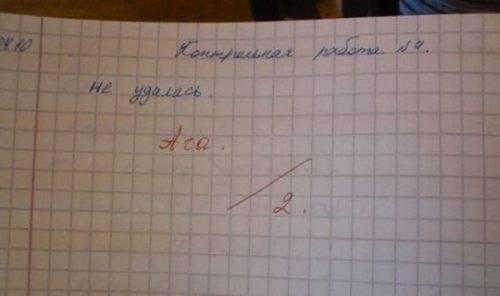 24.10
Контрольная работа №4.
Не удалась.
Ага.
2.